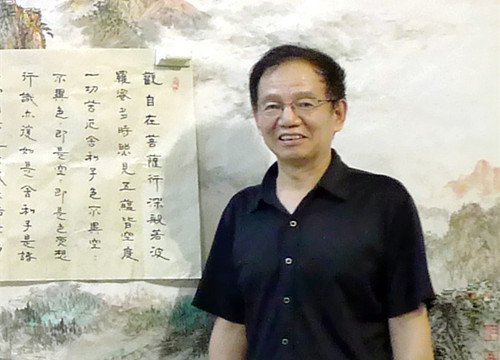 觀自在菩薩行深般若波
羅蜜多時照見五蘊皆空度
一切苦厄舍利子色不異空〻
不異色〻即是空〻即是色受想
行識亦復如是舍利子是諸